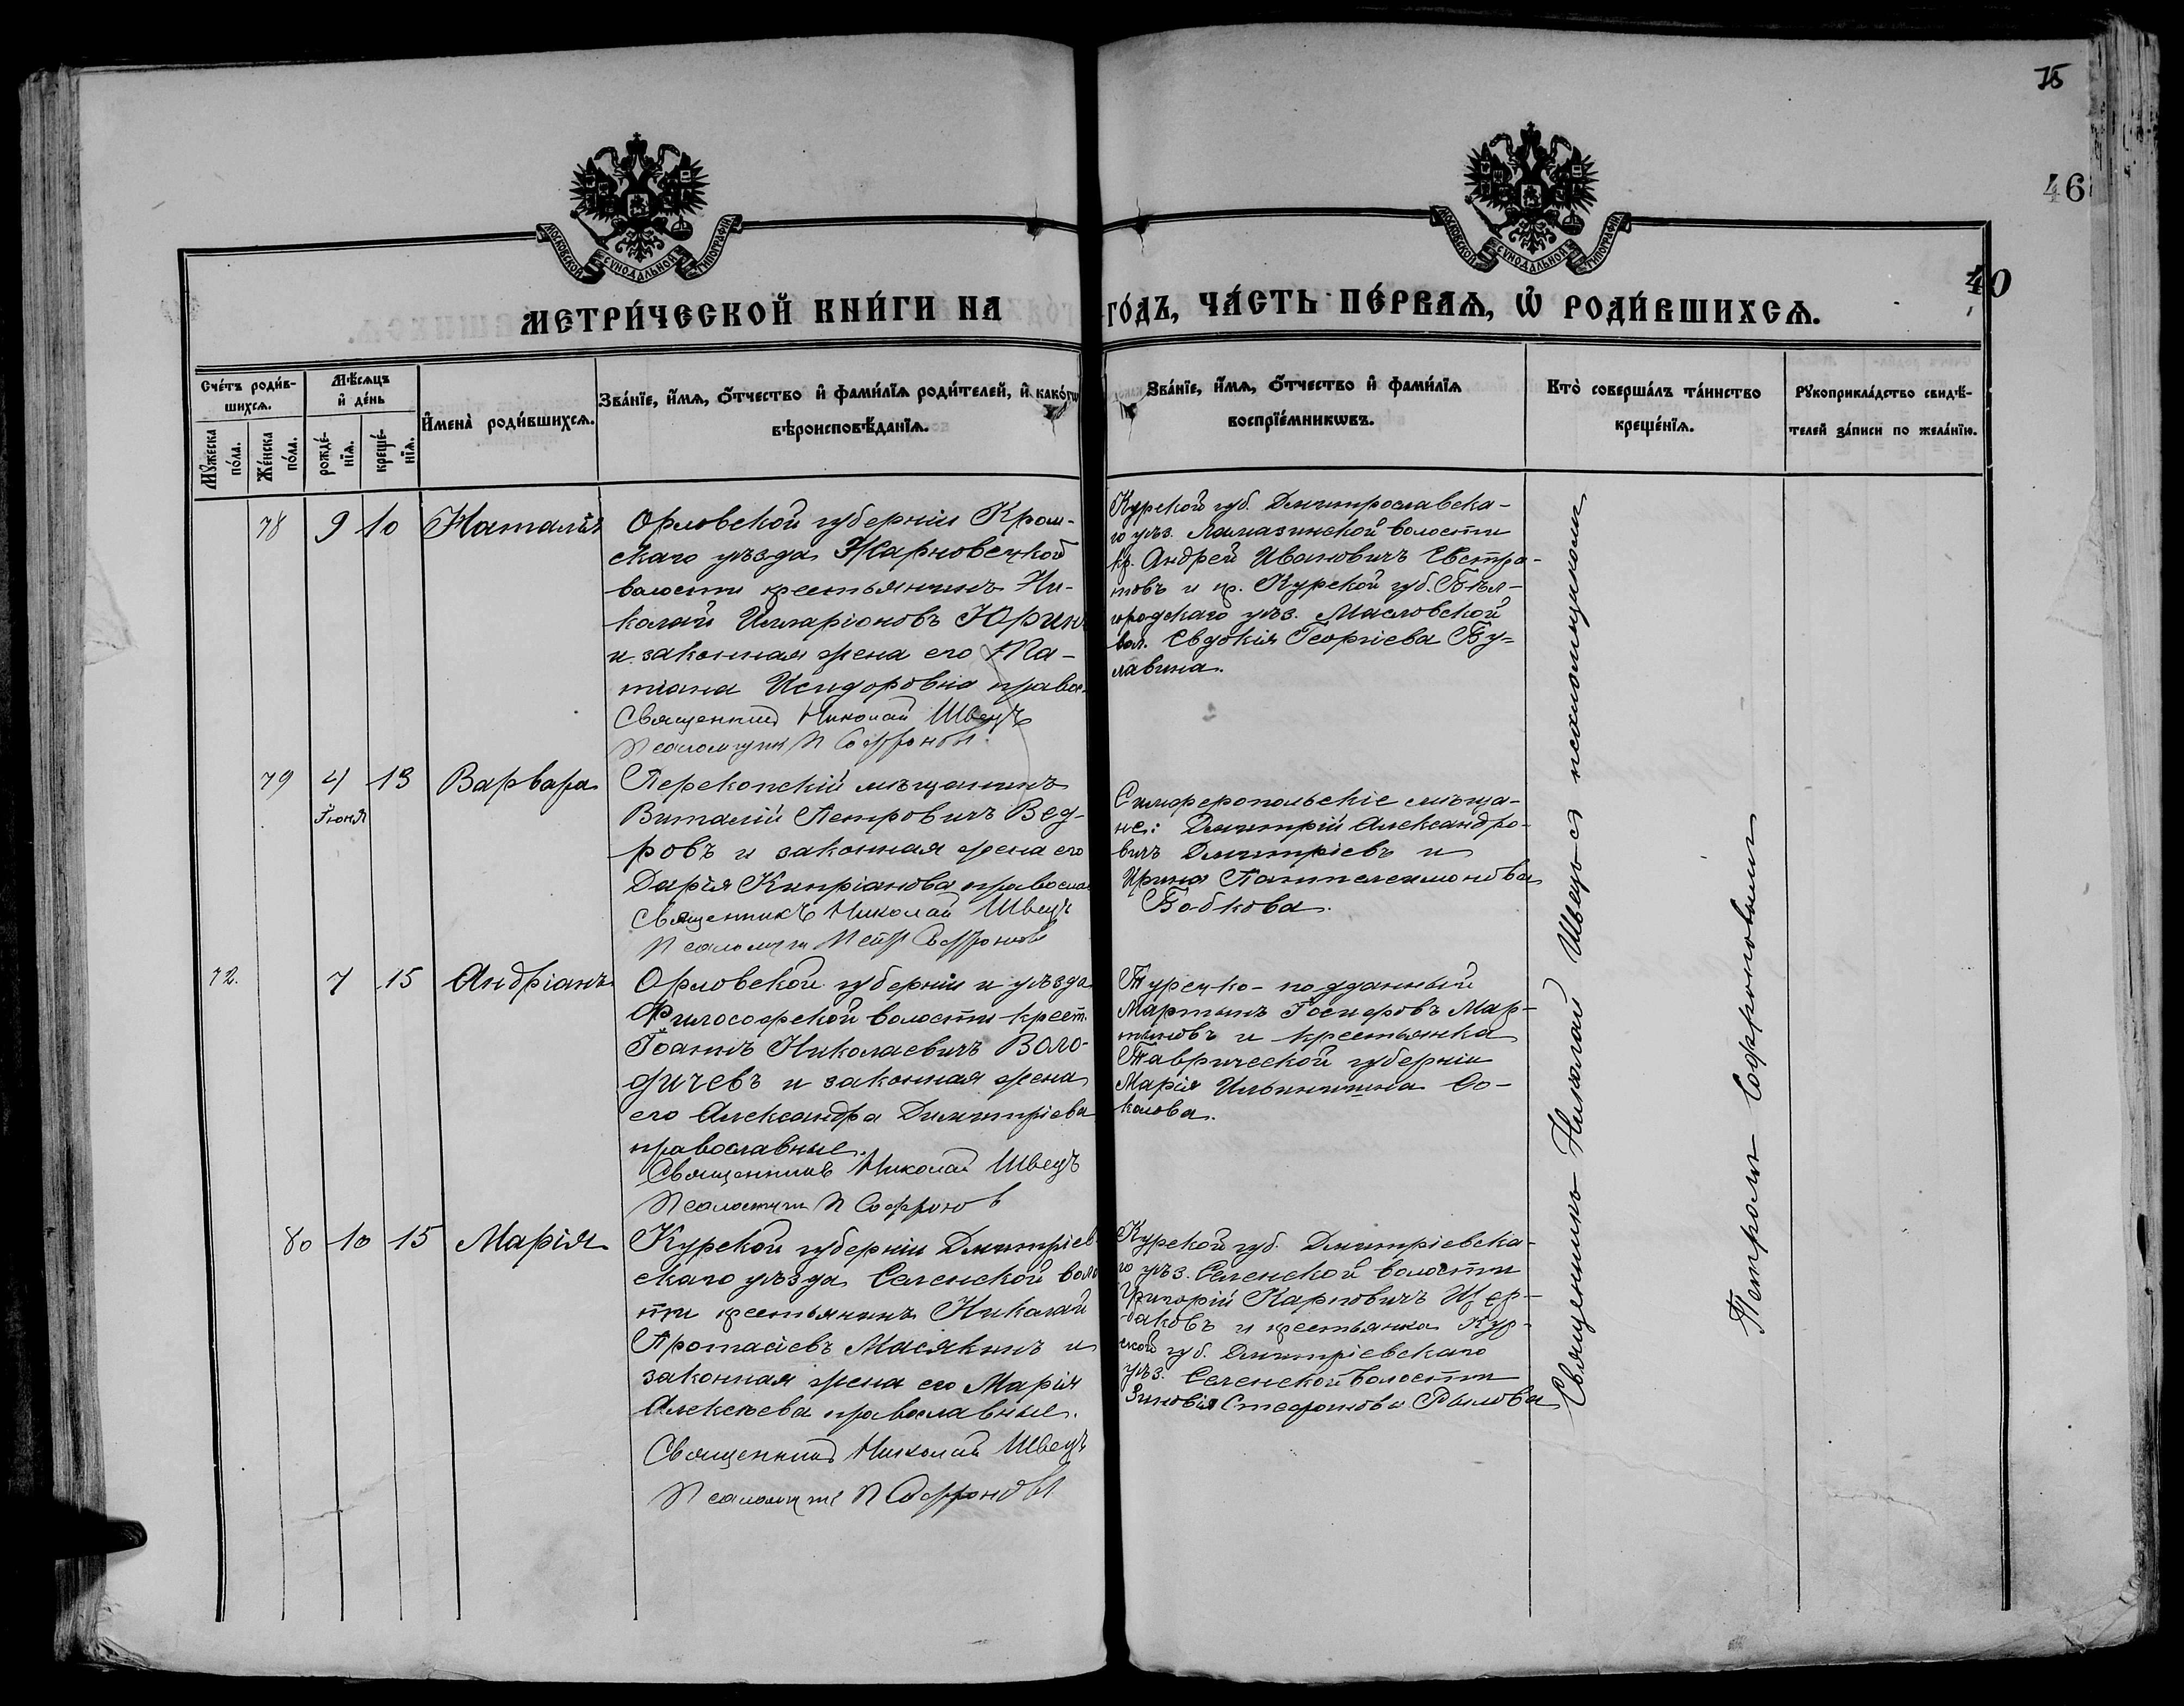 75
46
40
МОСКОВСКОЙ СѴНОДАЛЬНОЙ ТИПОГРАФІИ
МОСКОВСКОЙ СѴНОДАЛЬНОЙ ТИПОГРАФІИ
МЕТРИ́ЧЕСКОЙ КНИ́ГИ НА
ГО́ДЪ, ЧА́СТЬ ПЕ́РВАѦ, Ѽ РОДИ́ВШИХСѦ.
Сче́тъ роди́в-
шихсѧ.
Мꙋ́жеска по́ла.
Же́нска по́ла.
Мѣ́сѧцъ
и҆ де́нь
рожде́-
нїѧ.
креще́-
нїѧ.
И҆мена̀ роди́вшихсѧ.
Зва́нїе, и҆́мѧ, ѻ҆́тчество и҆ фами́лїѧ роди́телей, и҆ како́гѡ
вѣроисповѣ́данїѧ.
Зва́нїе, и҆́мѧ, ѻ҆́тчество и҆ фами́лїѧ
воспрїе́мникѡвъ.
Кто̀ соверша́лъ та́инство
креще́нїѧ.
Рꙋкоприкла́дство свидѣ́-
телей за́писи по жела́нїю.
78 9 10 Наталія
Орловской губерніи Кром-
скаго уѣзда Жарновецкой
волости крестьянинъ Ни-
колай Илларіоновъ Юринъ
и законная жена его Та-
тіана Исидоровна правос.
Священникъ Николай Швецъ
Псаломщик П Софронов
Курской губ. Дмитрославска-
го уѣз. волости
кр. Андрей Ивановичъ Евстра-
товъ и кр. Курской губ. Бѣл-
городскаго уѣз. Масловской
вол. Евдокія Георгіева Бу-
лавина.
79 4 13 Варвара
Іюня
Перекопскій мѣщанинъ
Виталій Петровичъ Вед-
ровъ и законная жена его
Дарія Кипріанова правосла
Священникъ Николай Швецъ
Псаломщик Петр Софронов
Симферопольскіе мѣща-
не: Димитрій Александро-
вичъ Димитріевъ и
Ирина Пантелеимонова
Бобкова.
72. 7 15 Андріанъ
Орловской губерніи и уѣзда
Философской волости крест.
Іоаннъ Николаевичъ Воло-
дичевъ и законная жена
его Александра Димитріева
православные.
Священникъ Николай Швецъ
Псаломщик П Софронов
Турецко-подданный
Мартынъ Госифовъ Мар-
тыновъ и крестьянка
Таврической губерніи
Марія Ильинишна Со-
колова.
80 10 15 Марія
Курской губерніи Дмитріев-
скаго уѣзда Селенской воло
сти крестьянинъ Николай
Протасіевъ Масякинъ и
законная жена его Марія
Алексѣева православные.
Священникъ Николай Швецъ
Псаломщик П Софронов
Курской губ. Дмитріевска-
го уѣз. Селенской волости
Григорій Карповичъ Щер-
баковъ и крестьянка Кур-
ской губ. Дмитріевскаго
уѣз. Селенской волости
Зиновія Стефанова Рылова
Священникъ Николай Швецъ съ псаломщикомъ
Петромъ Софроновымъ